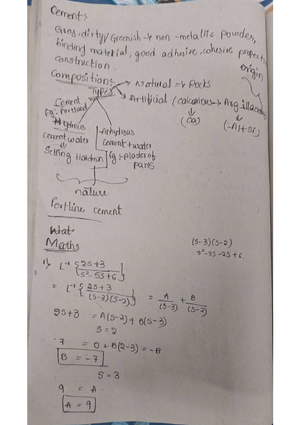 Cement:
Grey, dirty/Greenish → non-metallic powder,
binding material, good adhesive, cohesive property
construction.
origin
Compositions:
Types
Natural → Rocks
Artificial (calcarious → Argillaceous
(CaO) (-Al+Si)
Cement
Eg: portland
Hydrous
Cement water
Setting Hardion
Anhydrous
Cement + water
Eg:- plaster of
paris
nature
Portline cement
What
Maths
(s-3)(s-2)
s²-3s-2s+6
1) L⁻¹ {2s+3 / s²-5s+6}
= L⁻¹ {2s+3 / (s-3)(s-2)} = A/(s-3) + B/(s-2)
2s+3 = A(s-2) + B(s-3)
s=2
7 = 0 + B(2-3) = -B
B = -7
s=3
9 = A
A = 9